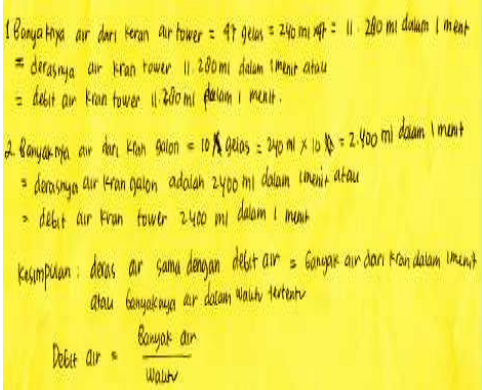 1. Banyaknya air dari keran air tower = 47 gelas = 240 ml x 47 = 11.280 ml dalam 1 menit
= derasnya air kran tower 11.280 ml dalam 1 menit atau
= debit air kran tower 11.280 ml dalam 1 menit.
2. Banyaknya air dari kran galon = 10 gelas = 240 ml x 10 = 2.400 ml dalam 1 menit
= derasnya air kran galon adalah 2400 ml dalam 1 menit atau
= debit air kran tower 2400 ml dalam 1 menit
Kesimpulan : deras air sama dengan debit air = banyak air dari kran dalam 1 menit
atau banyaknya air dalam waktu tertentu
Debit air = Banyak air
Waktu